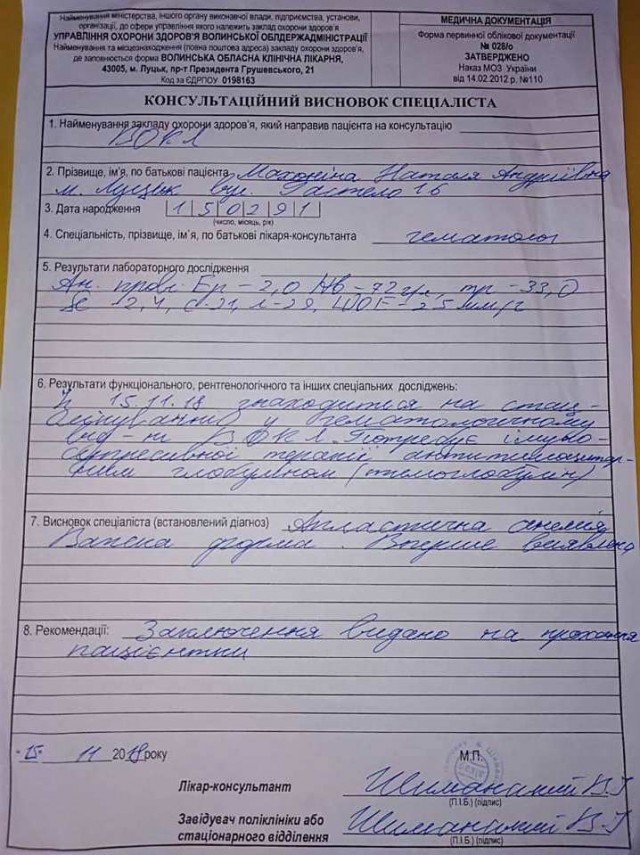 Найменування міністерства, іншого органу виконавчої влади, підприємства, установи,
організації, до сфери управління якого належить заклад охорони здоров'я
УПРАВЛІННЯ ОХОРОНИ ЗДОРОВ'Я ВОЛИНСЬКОЇ ОБЛДЕРЖАДМІНІСТРАЦІЇ
Найменування та місцезнаходження (повна поштова адреса) закладу охорони здоров'я,
де заповнюється форма ВОЛИНСЬКА ОБЛАСНА КЛІНІЧНА ЛІКАРНЯ,
43005, м. Луцьк, пр-т Президента Грушевського, 21
Код за ЄДРПОУ 0198163
МЕДИЧНА ДОКУМЕНТАЦІЯ
Форма первинної облікової документації
№ 028/о
ЗАТВЕРДЖЕНО
Наказ МОЗ України
від 14.02.2012 р. №110
КОНСУЛЬТАЦІЙНИЙ ВИСНОВОК СПЕЦІАЛІСТА
1. Найменування закладу охорони здоров'я, який направив пацієнта на консультацію
ВОКЛ
2. Прізвище, ім'я, по батькові пацієнта Махоніна Наталя Андріївна
м. Луцьк вул. Гастело 16
3. Дата народження 150291
(число, місяць, рік)
4. Спеціальність, прізвище, ім'я, по батькові лікаря-консультанта гематолог
5. Результати лабораторного дослідження
Ан. крові Ер - 2,0 Нв - 72 г/л, тр - 33,0
12,4, с-21, л-29, ШОЕ - 25 мм/г
6. Результати функціонального, рентгенологічного та інших спеціальних досліджень:
З 15.11.18 знаходиться на стац-
лікуванні у гематологічному
від-ні ВОКЛ. Потребує імуно-
супресивної терапії антитимоцитар-
ним глобуліном (тимоглобулін)
7. Висновок спеціаліста (встановлений діагноз) Апластична анемія
Важка форма. Вперше виявлена
8. Рекомендації: Заключення видано на прохання
пацієнтки
"15" 11 2018 року
М.П.
Лікар-консультант Шиманський В.І
(П.І.Б.) (підпис)
Завідувач поліклініки або
стаціонарного відділення Шиманський В.І
(П.І.Б.) (підпис)